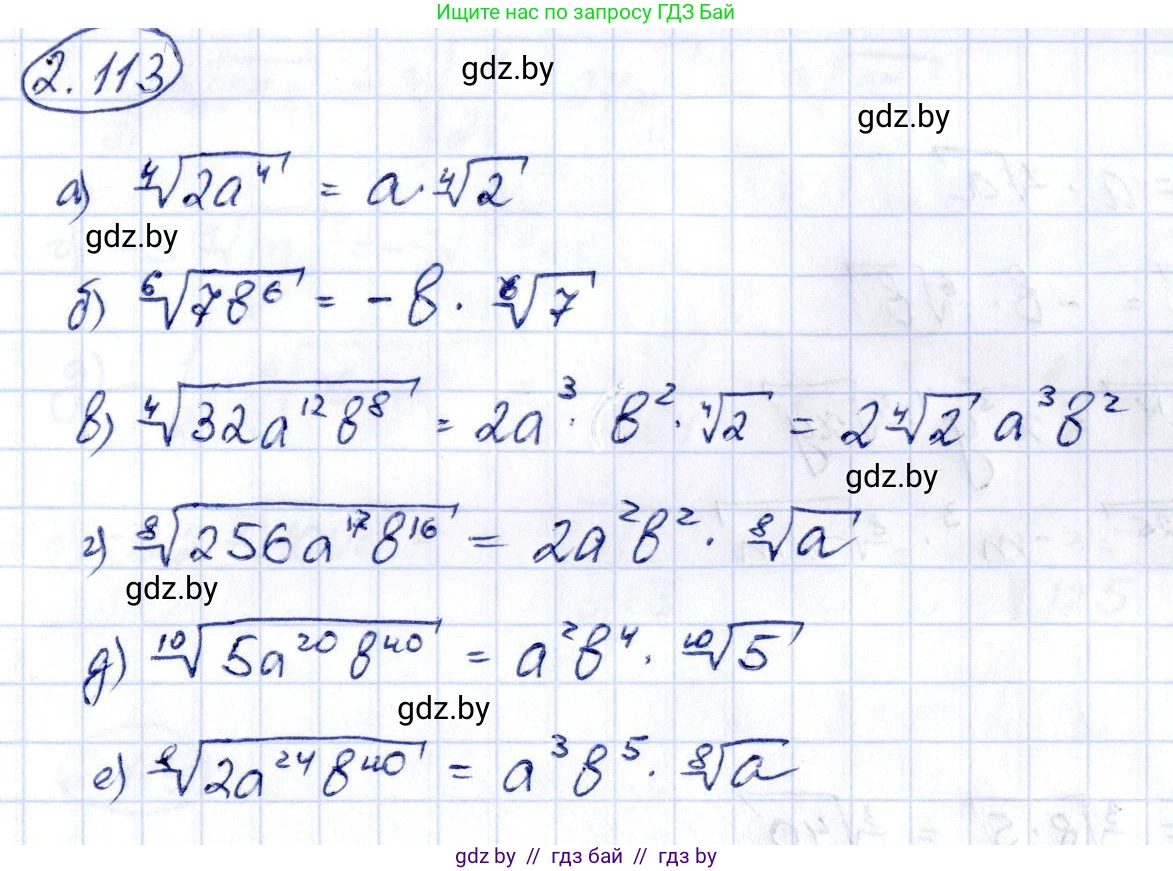 Ищите нас по запросу ГДЗ Бай
2.113
gdz.by
gdz.by
а) ∜(2a⁴) = a·∜2
gdz.by
б) ⁶√(7b⁶) = -b·⁶√7
в) ∜(32a¹²b⁸) = 2a³·b²·∜2 = 2∜2 a³b²
gdz.by
г) ⁸√(256a¹⁷b¹⁶) = 2a²b²·⁸√a
gdz.by
д) ¹⁰√(5a²⁰b⁴⁰) = a²b⁴·¹⁰√5
gdz.by
е) ⁸√(2a²⁴b⁴⁰) = a³b⁵·⁸√a
gdz.by // гдз бай // гдз by